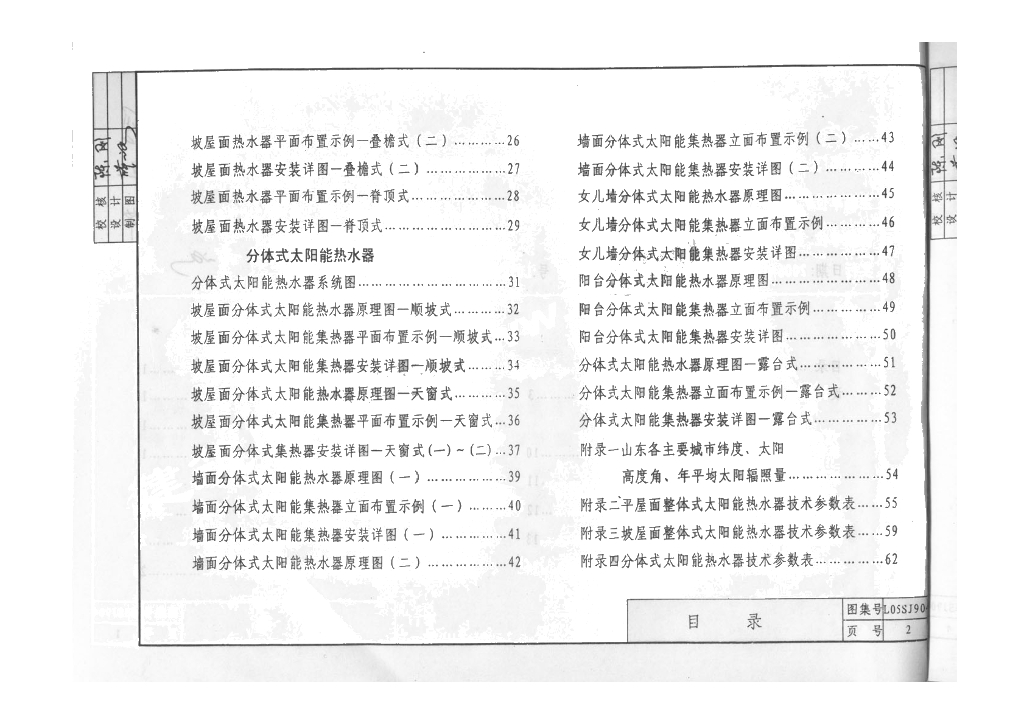 坡屋面热水器平面布置示例—叠檐式（二）…………26
坡屋面热水器安装详图—叠檐式（二）………………27
坡屋面热水器平面布置示例—脊顶式…………………28
坡屋面热水器安装详图—脊顶式………………………29
分体式太阳能热水器
分体式太阳能热水器系统图……………………………31
坡屋面分体式太阳能热水器原理图—顺坡式…………32
坡屋面分体式太阳能集热器平面布置示例—顺坡式…33
坡屋面分体式太阳能集热器安装详图—顺坡式………34
坡屋面分体式太阳能热水器原理图—天窗式…………35
坡屋面分体式太阳能集热器平面布置示例—天窗式…36
坡屋面分体式集热器安装详图—天窗式(一)~(二)…37
墙面分体式太阳能热水器原理图（一）………………39
墙面分体式太阳能集热器立面布置示例（一）………40
墙面分体式太阳能集热器安装详图（一）……………41
墙面分体式太阳能热水器原理图（二）………………42
墙面分体式太阳能集热器立面布置示例（二）……43
墙面分体式太阳能集热器安装详图（二）…………44
女儿墙分体式太阳能热水器原理图…………………45
女儿墙分体式太阳能集热器立面布置示例…………46
女儿墙分体式太阳能集热器安装详图………………47
阳台分体式太阳能热水器原理图……………………48
阳台分体式太阳能集热器立面布置示例……………49
阳台分体式太阳能集热器安装详图…………………50
分体式太阳能热水器原理图—露台式………………51
分体式太阳能集热器立面布置示例—露台式………52
分体式太阳能集热器安装详图—露台式……………53
附录一山东各主要城市纬度、太阳
高度角、年平均太阳辐照量…………………54
附录二平屋面整体式太阳能热水器技术参数表……55
附录三坡屋面整体式太阳能热水器技术参数表……59
附录四分体式太阳能热水器技术参数表……………62
目 录
图集号 L05SJ90
页 号 2
校核
设计
制图
校核
设计